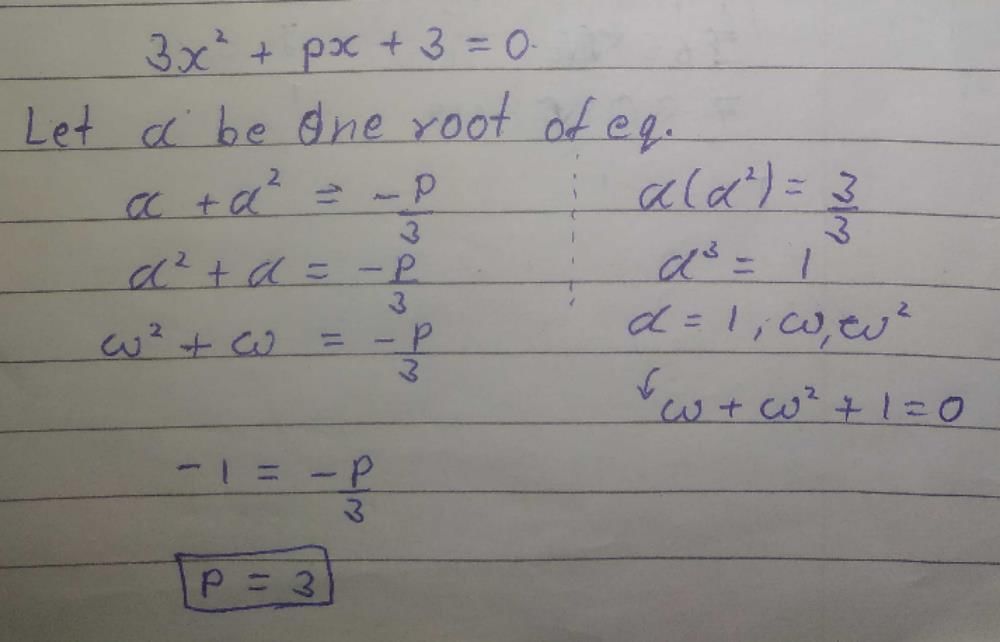 3x² + px + 3 = 0.
Let α be One root of eq.
α + α² = -p/3
α² + α = -p/3
ω² + ω = -p/3
α(α²) = 3/3
α³ = 1
α = 1, ω, ω²
↙ω + ω² + 1 = 0
-1 = -p/3
P = 3